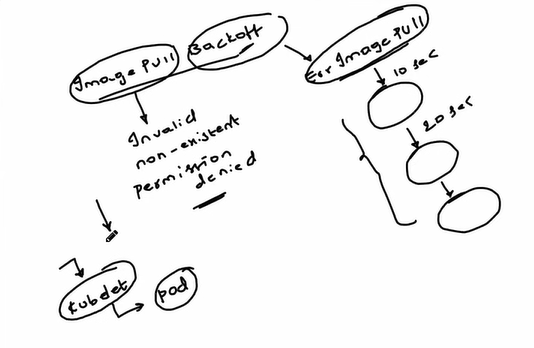 Image Pull
Backoff
Err Image Pull
10 sec
20 sec
Invalid
non-existent
permission
denied
Kubelet
pod